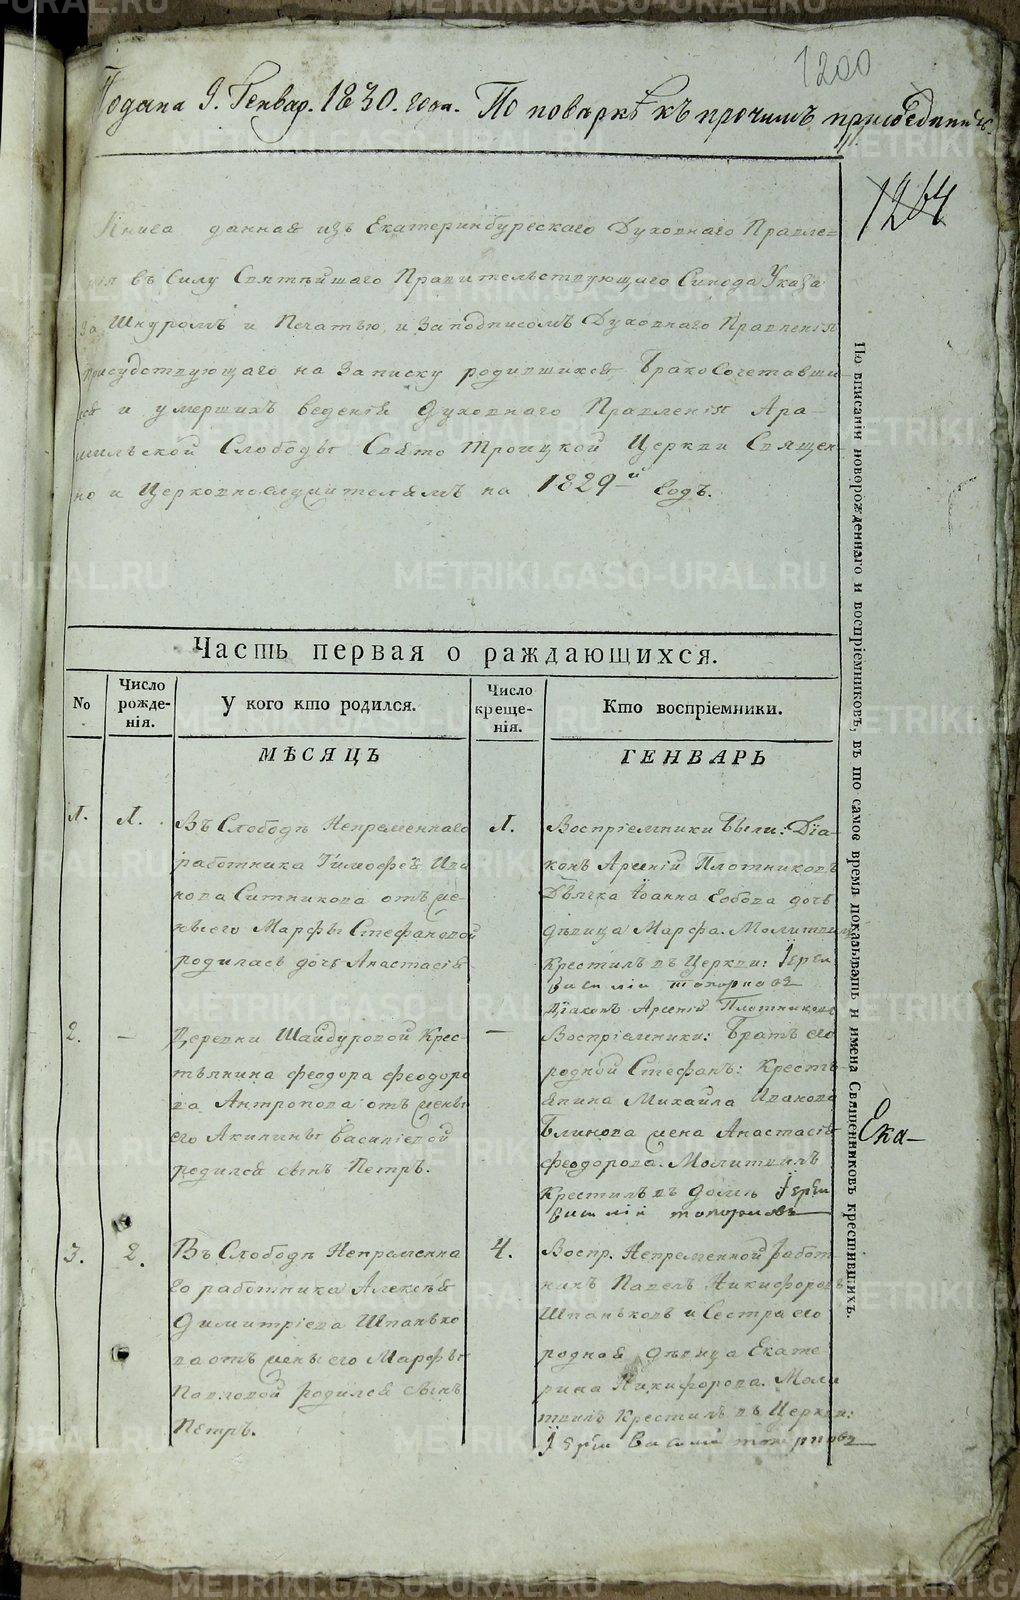 1200
Подана 9. Генвар. 1830. года. По поверкѣ къ прочимъ присоединить.
1264
Книга данная изъ Екатеринбургскаго Духовнаго Правле-
нія въ Силу Святѣйшаго Правительствующаго Синода Указа
за Шнуромъ и Печатью, и За подписомъ Духовнаго Правленія
Присудствующаго на Записку родившихся Бракосочетавши
ся и умершихъ веденія Духовнаго Правленія Ара-
мильской Слободы Свято Троицкой Церкви Священ-
но и Церковнослужителямъ на 1829й Годъ.
Часть первая о раждающихся.
No
Число рожде-нія.
У кого кто родился.
Число креще-нія.
Кто воспріемники.
МѢСЯЦЪ
ГЕНВАРЬ
1.
1.
Въ Слободѣ Непременнаго
работника Тимофея Ива
нова Ситникова отъ же-
ны его Марфы Стефановой
родилась дочь Анастасія
1.
Воспріемники были: Діа-
конъ Арсеній Плотниковъ
Дьячка Іоанна дочь
дѣвица Марфа. Молитвилъ
Крестилъ въ Церкви: Іерей
Василій Топорковъ
Діаконъ Арсеній Плотниковъ
2.
—
Деревни Шайдуровой Крес-
тьянина Феодора Феодоро
ва Антропова отъ жены
его Акилины Василіевой
родился сынъ Петръ.
—
Воспріемники: Братъ его
родной Стефанъ: Кресть-
янина Михаила Иванова
Блинова жена Анастасія
Феодорова. Молитвилъ
Крестилъ въ домѣ Іерей
Василій Топорковъ
3.
2.
Въ Слободѣ Непременна
го работника Алексѣя
Димитріева Шпанько
ва отъ жены его Марфы
Павловой родился сынъ
Петръ.
4.
Воспр. Непременной работ
никъ Павелъ Никифоровъ
Шпаньковъ и Сестра его
родная дѣвица Екате
рина Никифорова. Моли
твилъ Крестилъ въ Церкви:
Іерей Василій Топорковъ
По вписаніи новорожденнаго и воспріемниковъ, въ то самое время показывать и имена Священниковъ крестившихъ.
Ека-
METRIKI.GASO-URAL.RU